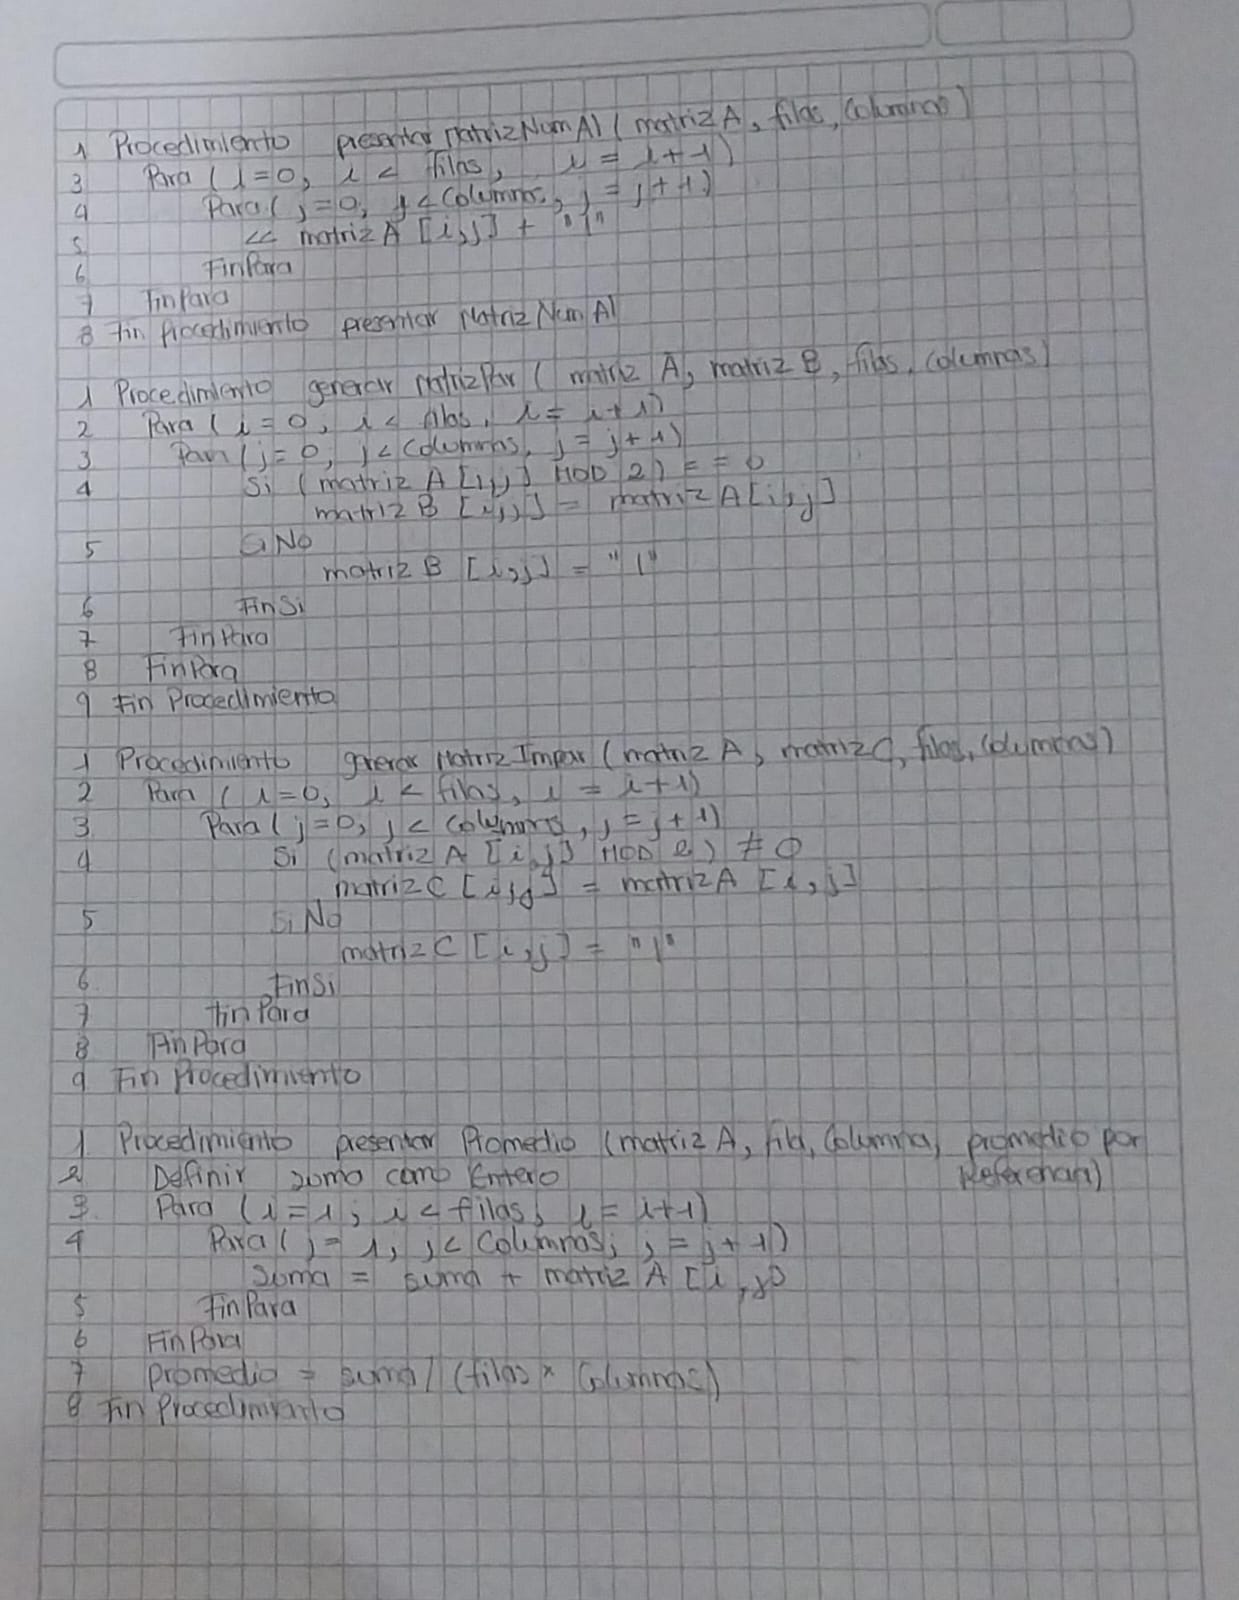 1 Procedimiento presentar MatrizNumAl (matriz A, filas, Columnas)
3 Para (i=0, i < filas, i = i+1)
4 Para (j=0, j < Columnas, j = j+1)
5 << matriz A [i,j] + "|"
6 FinPara
7 FinPara
8 Fin Procedimiento presentar Matriz Num Al
1 Procedimiento generar MatrizPar ( matriz A, matriz B, filas, Columnas)
2 Para (i=0, i < filas, i = i+1)
3 Para (j=0, j < Columnas, j = j+1)
4 Si (matriz A [i,j] MOD 2) == 0
matriz B [i,j] = matriz A [i,j]
5 SiNo
matriz B [i,j] = "|"
6 FinSi
7 FinPara
8 FinPara
9 Fin Procedimiento
1 Procedimiento generar Matriz Impar (matriz A, matriz C, filas, Columnas)
2 Para (i=0, i < filas, i = i+1)
3 Para (j=0, j < Columnas, j = j+1)
4 Si (matriz A [i,j] MOD 2) ≠ 0
matriz C [i,j] = matriz A [i,j]
5 SiNo
matriz C [i,j] = "|"
6 FinSi
7 FinPara
8 FinPara
9 Fin Procedimiento
1 Procedimiento presentar Promedio (matriz A, fila, Columna, promedio por
2 Definir suma como Entero Referencia)
3 Para (i=1; i < filas; i = i+1)
4 Para (j=1; j < Columnas; j = j+1)
Suma = suma + matriz A [i,j]
5 FinPara
6 FinPara
7 promedio = suma / (filas x Columnas)
8 Fin Procedimiento